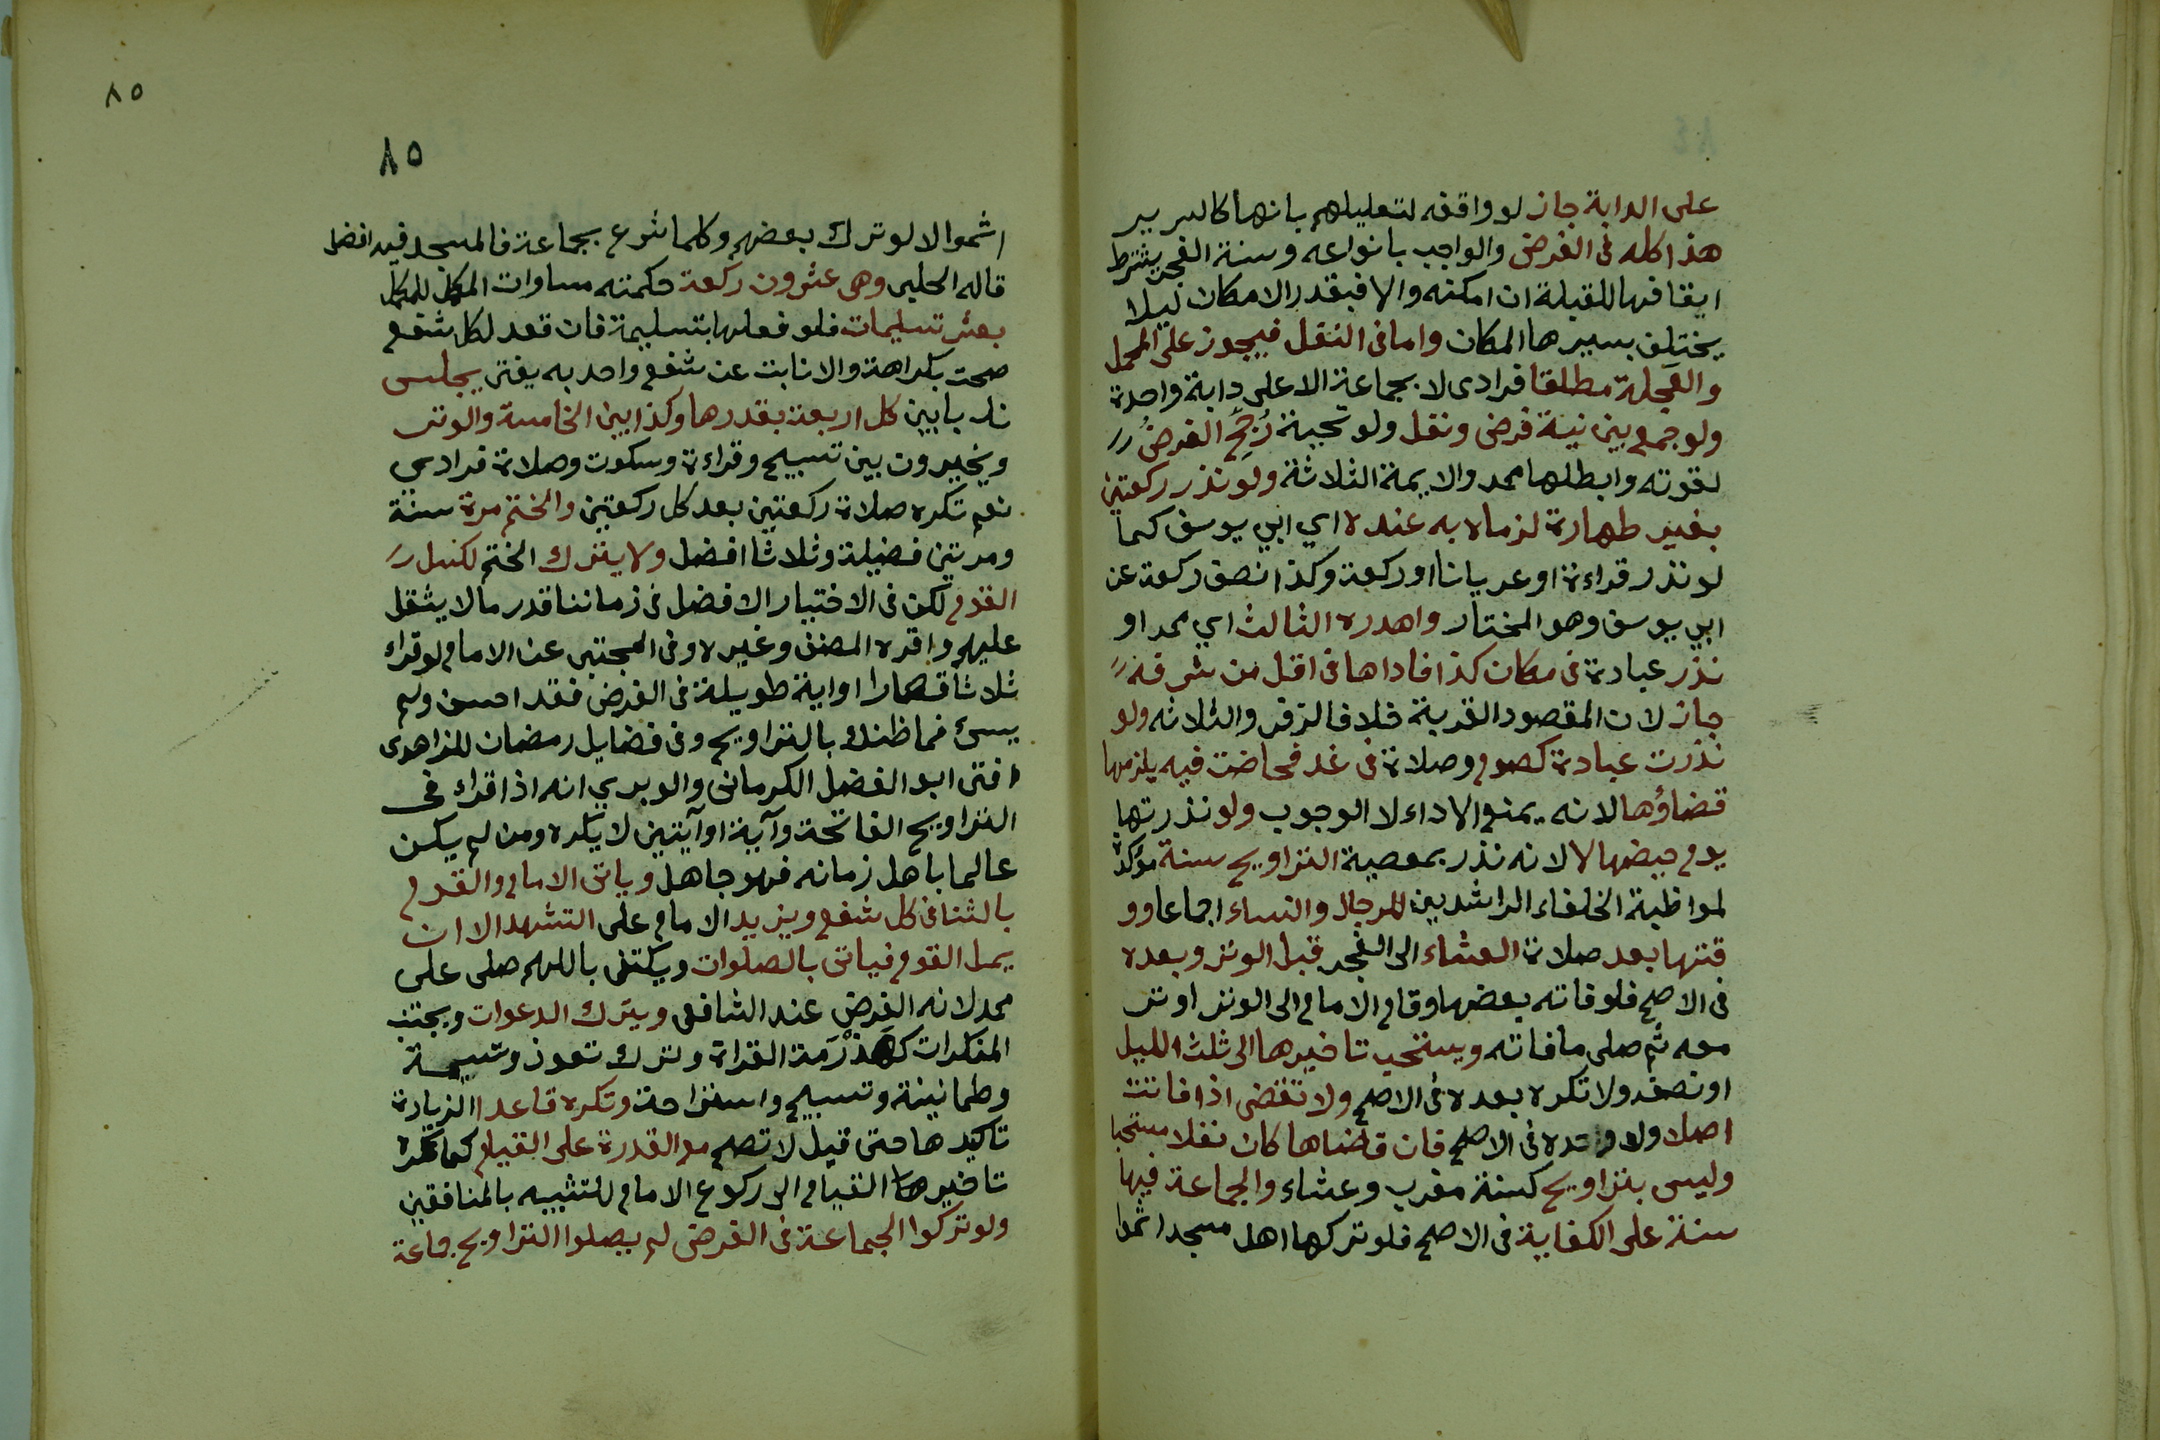 على الدابة جاز لو واقفه لتعليلهم بانها كالسرير
هذا كله فى الفرض والواجب بانواعه وسنة الفجر بشرط
ايقافها للقبلة ان امكنه والا فبقدر الامكان ليلا
يختلف بسيرها المكان واما فى النفل فيجوز على المحمل
والعجلة مطلقا فرادى لا بجماعة الا على دابة واحدة
ولو جمع بين نية فرض ونفل ولو تحية رُجِّح الفرضُ
لقوته وابطلها محمد والايمة الثلاثة ولو نذر ركعتين
بغير طهارة لزماه به عنده اي ابي يوسف كما
لو نذر قراءة او عريانا او ركعة وكذا نصف ركعة عن
ابي يوسف وهو المختار واهدره الثالث اي محمد او
نذر عبادة فى مكان كذا فاداها فى اقل من شرفه
جاز لان المقصود القربة خلافا لزفر والثلاثه ولو
نذرت عبادة كصوم وصلاة فى غد فحاضت فيه يلزمها
قضاؤها لانه يمنع الاداء لا الوجوب ولو نذرتها
يوم حيضها لا لانه نذر بمعصية التراويح سنة مؤكدة
لمواظبة الخلفاء الراشدين للرجال والنساء اجماعا وو
قتها بعد صلاة العشاء الى الفجر قبل الوتر وبعده
فى الاصح فلو فاته بعضها وقام الامام الى الوتر اوتر
معه ثم صلى ما فاته ويستحب تاخيرها الى ثلث الليل
او نصفه ولا تكره بعده فى الاصح ولا تقضى اذا فاتت
اصلا ولا وحده فى الاصح فان قضاها كان نفلا مستحبا
وليس بتراويح كسنة مغرب وعشاء والجماعة فيها
سنة على الكفاية فى الاصح فلو تركها اهل مسجد اثموا
٨٥
٨٥
اثموا الا لو ترك بعضهم وكلما شرع بجماعة فالمسجد فيه افضل
قاله الحلبى وهى عشرون ركعة حكمته مساوات المكمل للمكمل
بعشر تسليمات فلو فعلها بتسليمة فان قعد لكل شفع
صحت بكراهة والا نابت عن شفع واحد به يفتى يجلس
ندبا بين كل اربعة بقدرها وكذا بين الخامسة والوتر
ويخيرون بين تسبيح وقراءة وسكوت وصلاة فرادى
نعم تكره صلاة ركعتين بعد كل ركعتين والختم مرة سنة
ومرتين فضيلة وثلاثا افضل ولا يترك الختم لكسل
القوم لكن فى الاختيار الافضل فى زماننا قدر ما لا يثقل
عليهم واقره المصنف وغيره وفى المجتبى عن الامام لو قراء
ثلاثا قصارا او اية طويلة فى الفرض فقد احسن ولم
يسئ فما ظنك بالتراويح وفى فضايل رمضان للزاهدى
افتى ابو الفضل الكرمانى والوبري انه اذا قراء فى
التراويح الفاتحة وآية او آيتين لا يكره ومن لم يكن
عالما باهل زمانه فهو جاهل وياتى الامام والقوم
بالثنا فى كل شفع ويزيد الامام على التشهد الا ان
يمل القوم فياتى بالصلوات ويكتفى باللهم صلى على
محمد لانه الفرض عند الشافعى ويترك الدعوات ويجتنب
المنكرات كهذْرَمة القراة وترك تعوذ وتسمية
وطمانينة وتسبيح واستراحة وتكره قاعدا الزيادة
تاكيدها حتى قيل لا تصح مع القدرة على القيام كما تكره
تاخيرها القيام الى ركوع الامام للتشبيه بالمنافقين
ولو تركوا الجماعة فى الفرض لم يصلوا التراويح جماعة